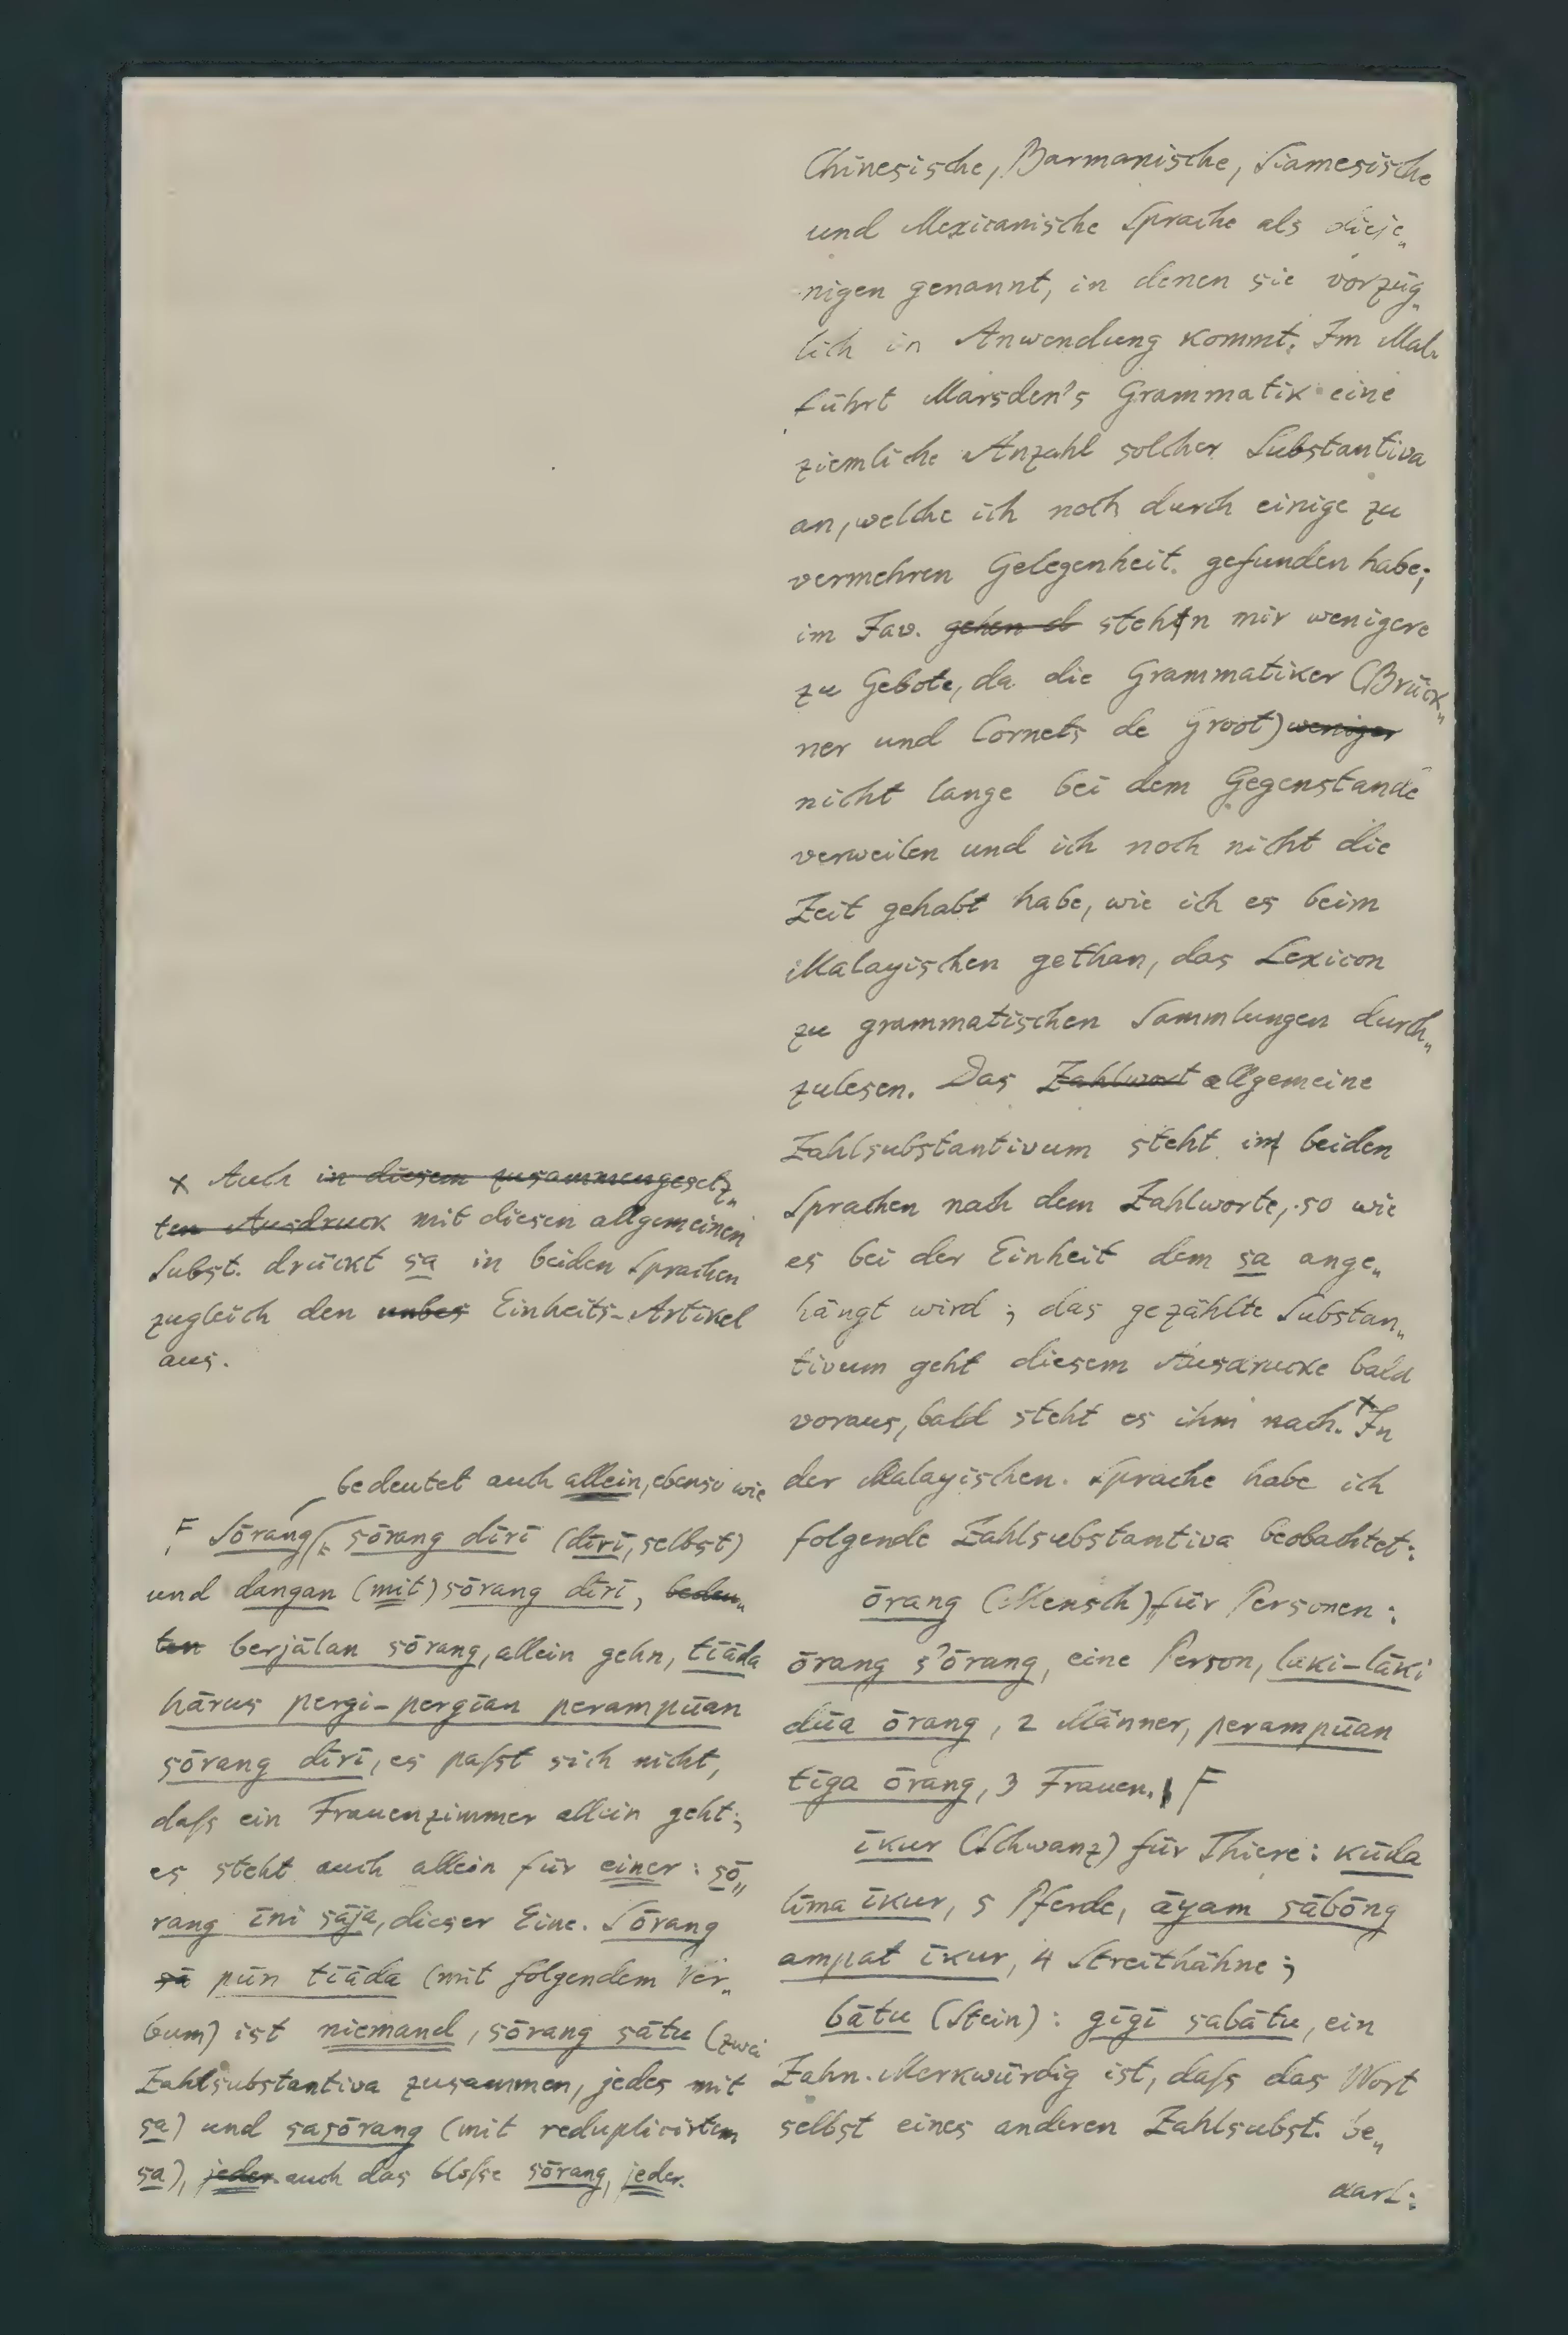 Chinesische, Barmanische, Siamesische
und Mexicanische Sprache als dieje„
nigen genannt, in denen sie vorzüg„
lich in Anwendung kommt. Im Mal.
führt Marsden's Grammatik eine
ziemliche Anzahl solcher Substantiva
an, welche ich noch durch einige zu
vermehren Gelegenheit gefunden habe;
im Jav. gehen d stehn mir wenigere
zu Gebote, da die Grammatiker (Brück„
ner und Cornets de Groot) weniger
nicht lange bei dem Gegenstande
verweilen und ich noch nicht die
Zeit gehabt habe, wie ich es beim
Malayischen gethan, das Lexicon
zu grammatischen Sammlungen durch„
zulesen. Das Zahlwort allgemeine
Zahlsubstantivum steht in beiden
Sprachen nach dem Zahlworte, so wie
es bei der Einheit dem sa ange„
hängt wird; das gezählte Substan„
tivum geht diesem Ausdrucke bald
voraus, bald steht es ihm nach. x In
der Malayischen Sprache habe ich
folgende Zahlsubstantiva beobachtet:
ōrang (Mensch) für Personen:
ōrang s'ōrang, eine Person, laki-lāki
dūa ōrang, 2 Männer, perampūan
tīga ōrang, 3 Frauen. F
īkur (Schwanz) für Thiere: kūda
līma īkur, 5 Pferde, āyam sābōng
ampat īkur, 4 Streithähne;
bātu (Stein): gīgī sabātu, ein
Zahn. Merkwürdig ist, daſs das Wort
selbst eines anderen Zahlsubst. be„
darf:
x Auch in diesem zusammengesetz„
ten Ausdruck mit diesen allgemeinen
Subst. drückt sa in beiden Sprachen
zugleich den unbes Einheits-Artikel
aus.
bedeutet auch allein, ebenso wie
F Sōrang sōrang dīrī (dīrī, selbst)
und dangan (mit) sōrang dīrī, bedeu„
ten berjālan sōrang, allein gehn, tīāda
hārus pergi-pergīan perampūan
sōrang dīrī, es paſst sich nicht,
daſs ein Frauenzimmer allein geht;
es steht auch allein für einer: sō„
rang īnī sāja, dieser Eine. Sōrang
sā pūn tīāda (mit folgendem Ver„
bum) ist niemand, sōrang sātu (zwei
Zahlsubstantiva zusammen, jedes mit
sa) und sasōrang (mit reduplicirtem
sa), jeder. auch das bloſse sōrang, jeder.